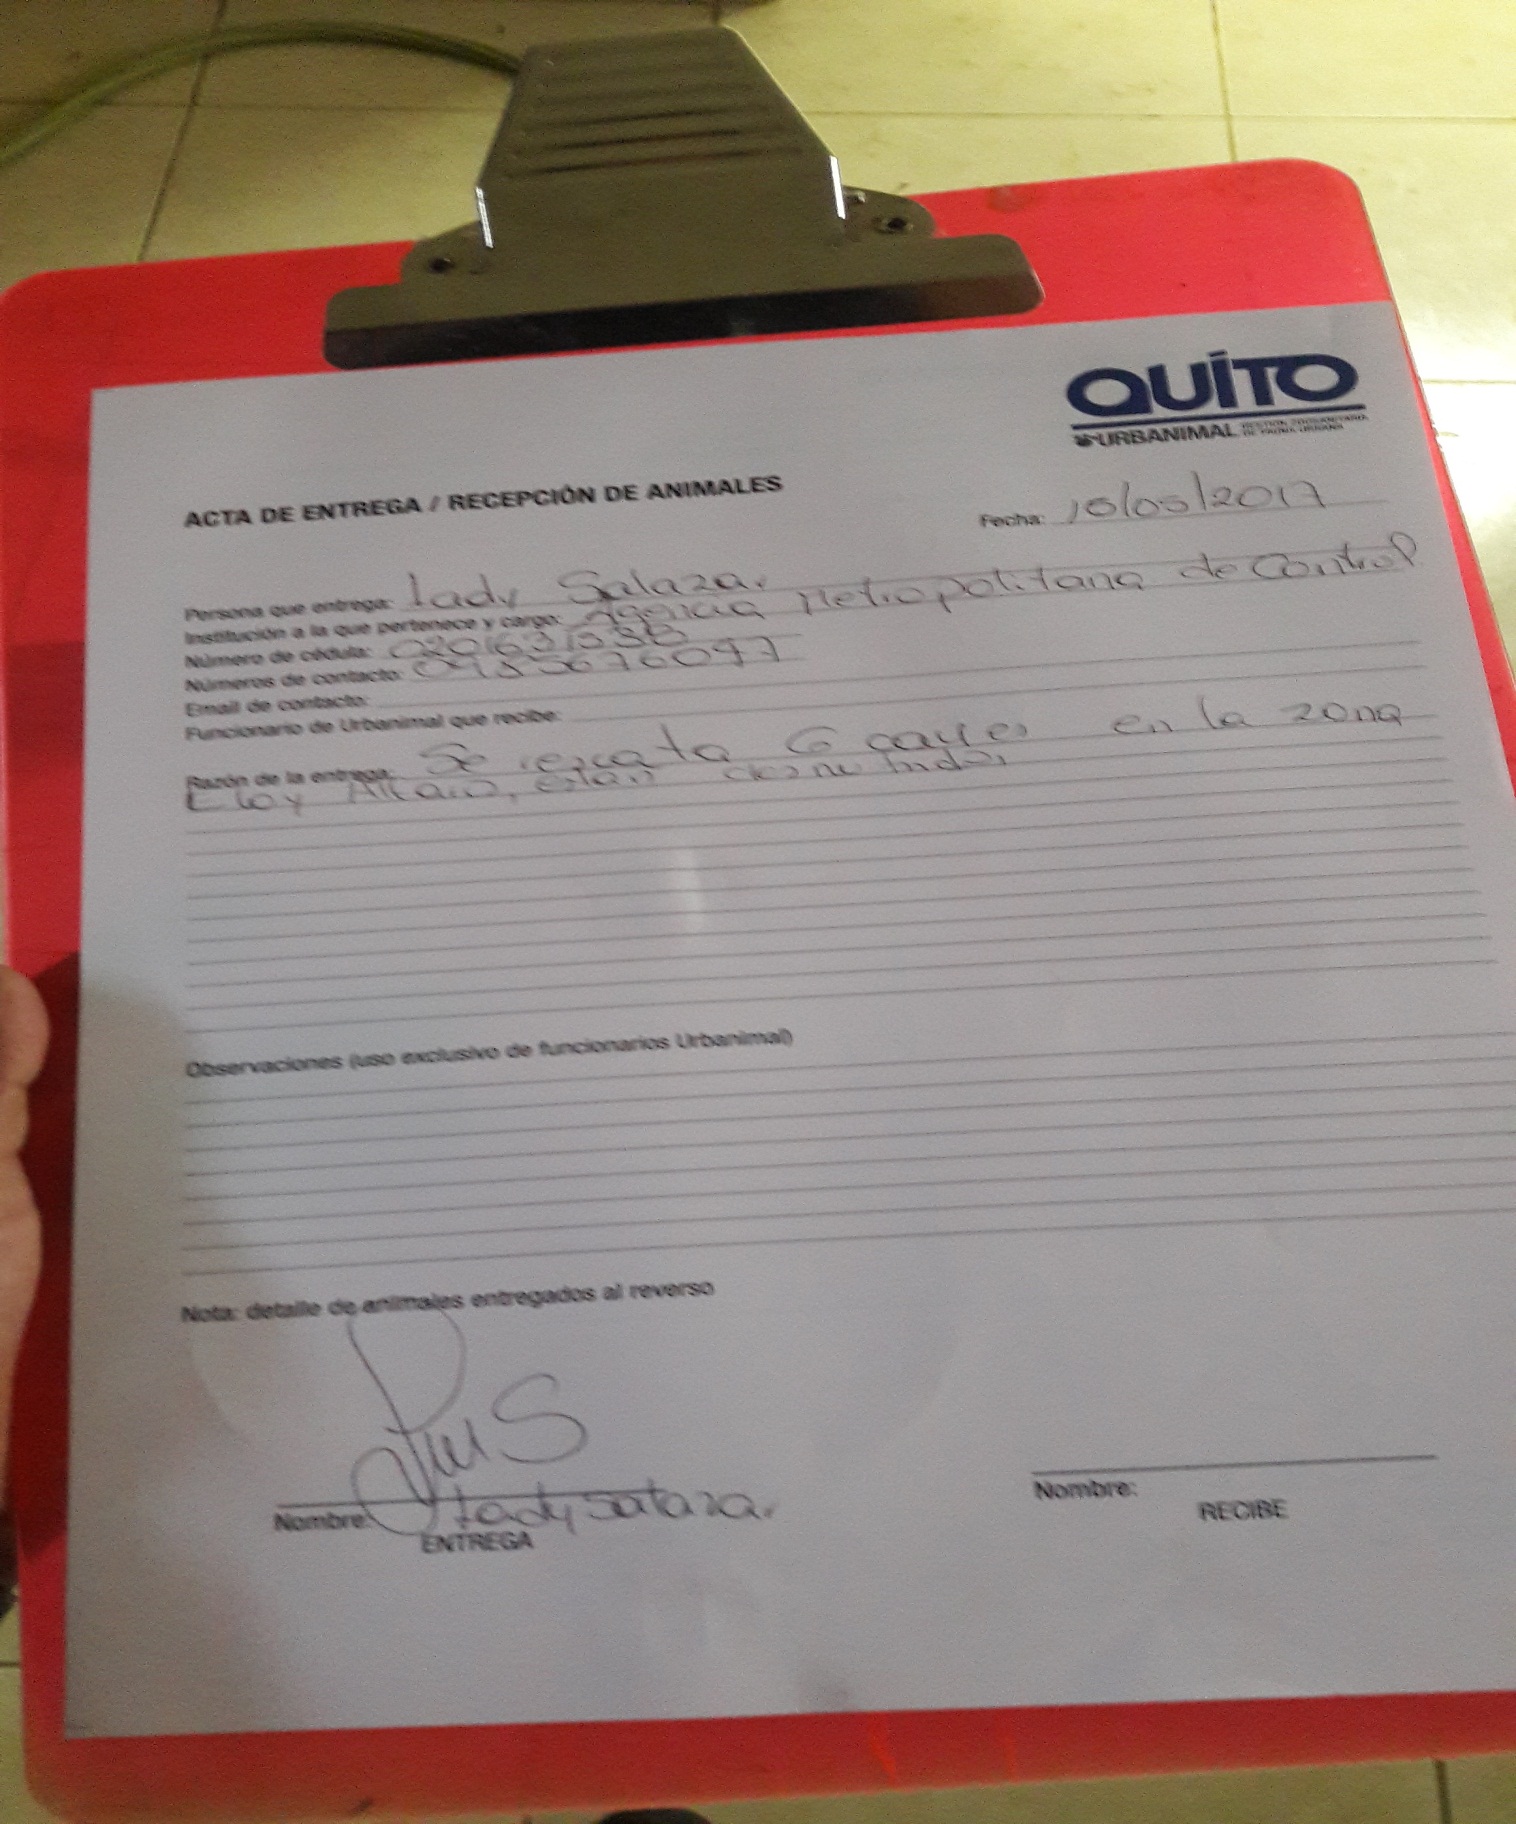 QUITO
URBANIMAL GESTIÓN ZOOSANITARIA
DE FAUNA URBANA
ACTA DE ENTREGA / RECEPCIÓN DE ANIMALES
Fecha: 10/05/2017
Persona que entrega: Lady Salazar
Institución a la que pertenece y cargo: Agencia Metropolitana de Control
Número de cédula:
Números de contacto:
Email de contacto:
Funcionario de Urbanimal que recibe:
Razón de la entrega: Se rescata 6 canes en la zona
Eloy Alfaro, están desnutridos
Observaciones (uso exclusivo de funcionarios Urbanimal)
Nota: detalle de animales entregados al reverso
Nombre: Lady Salazar
ENTREGA
Nombre:
RECIBE